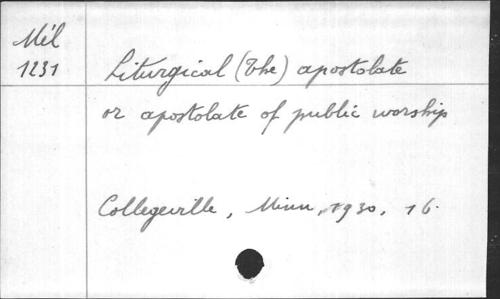 Mél
1231
Liturgical (The) apostolate
or apostolate of public worship
Collegeville, Minn, 1930, 16.